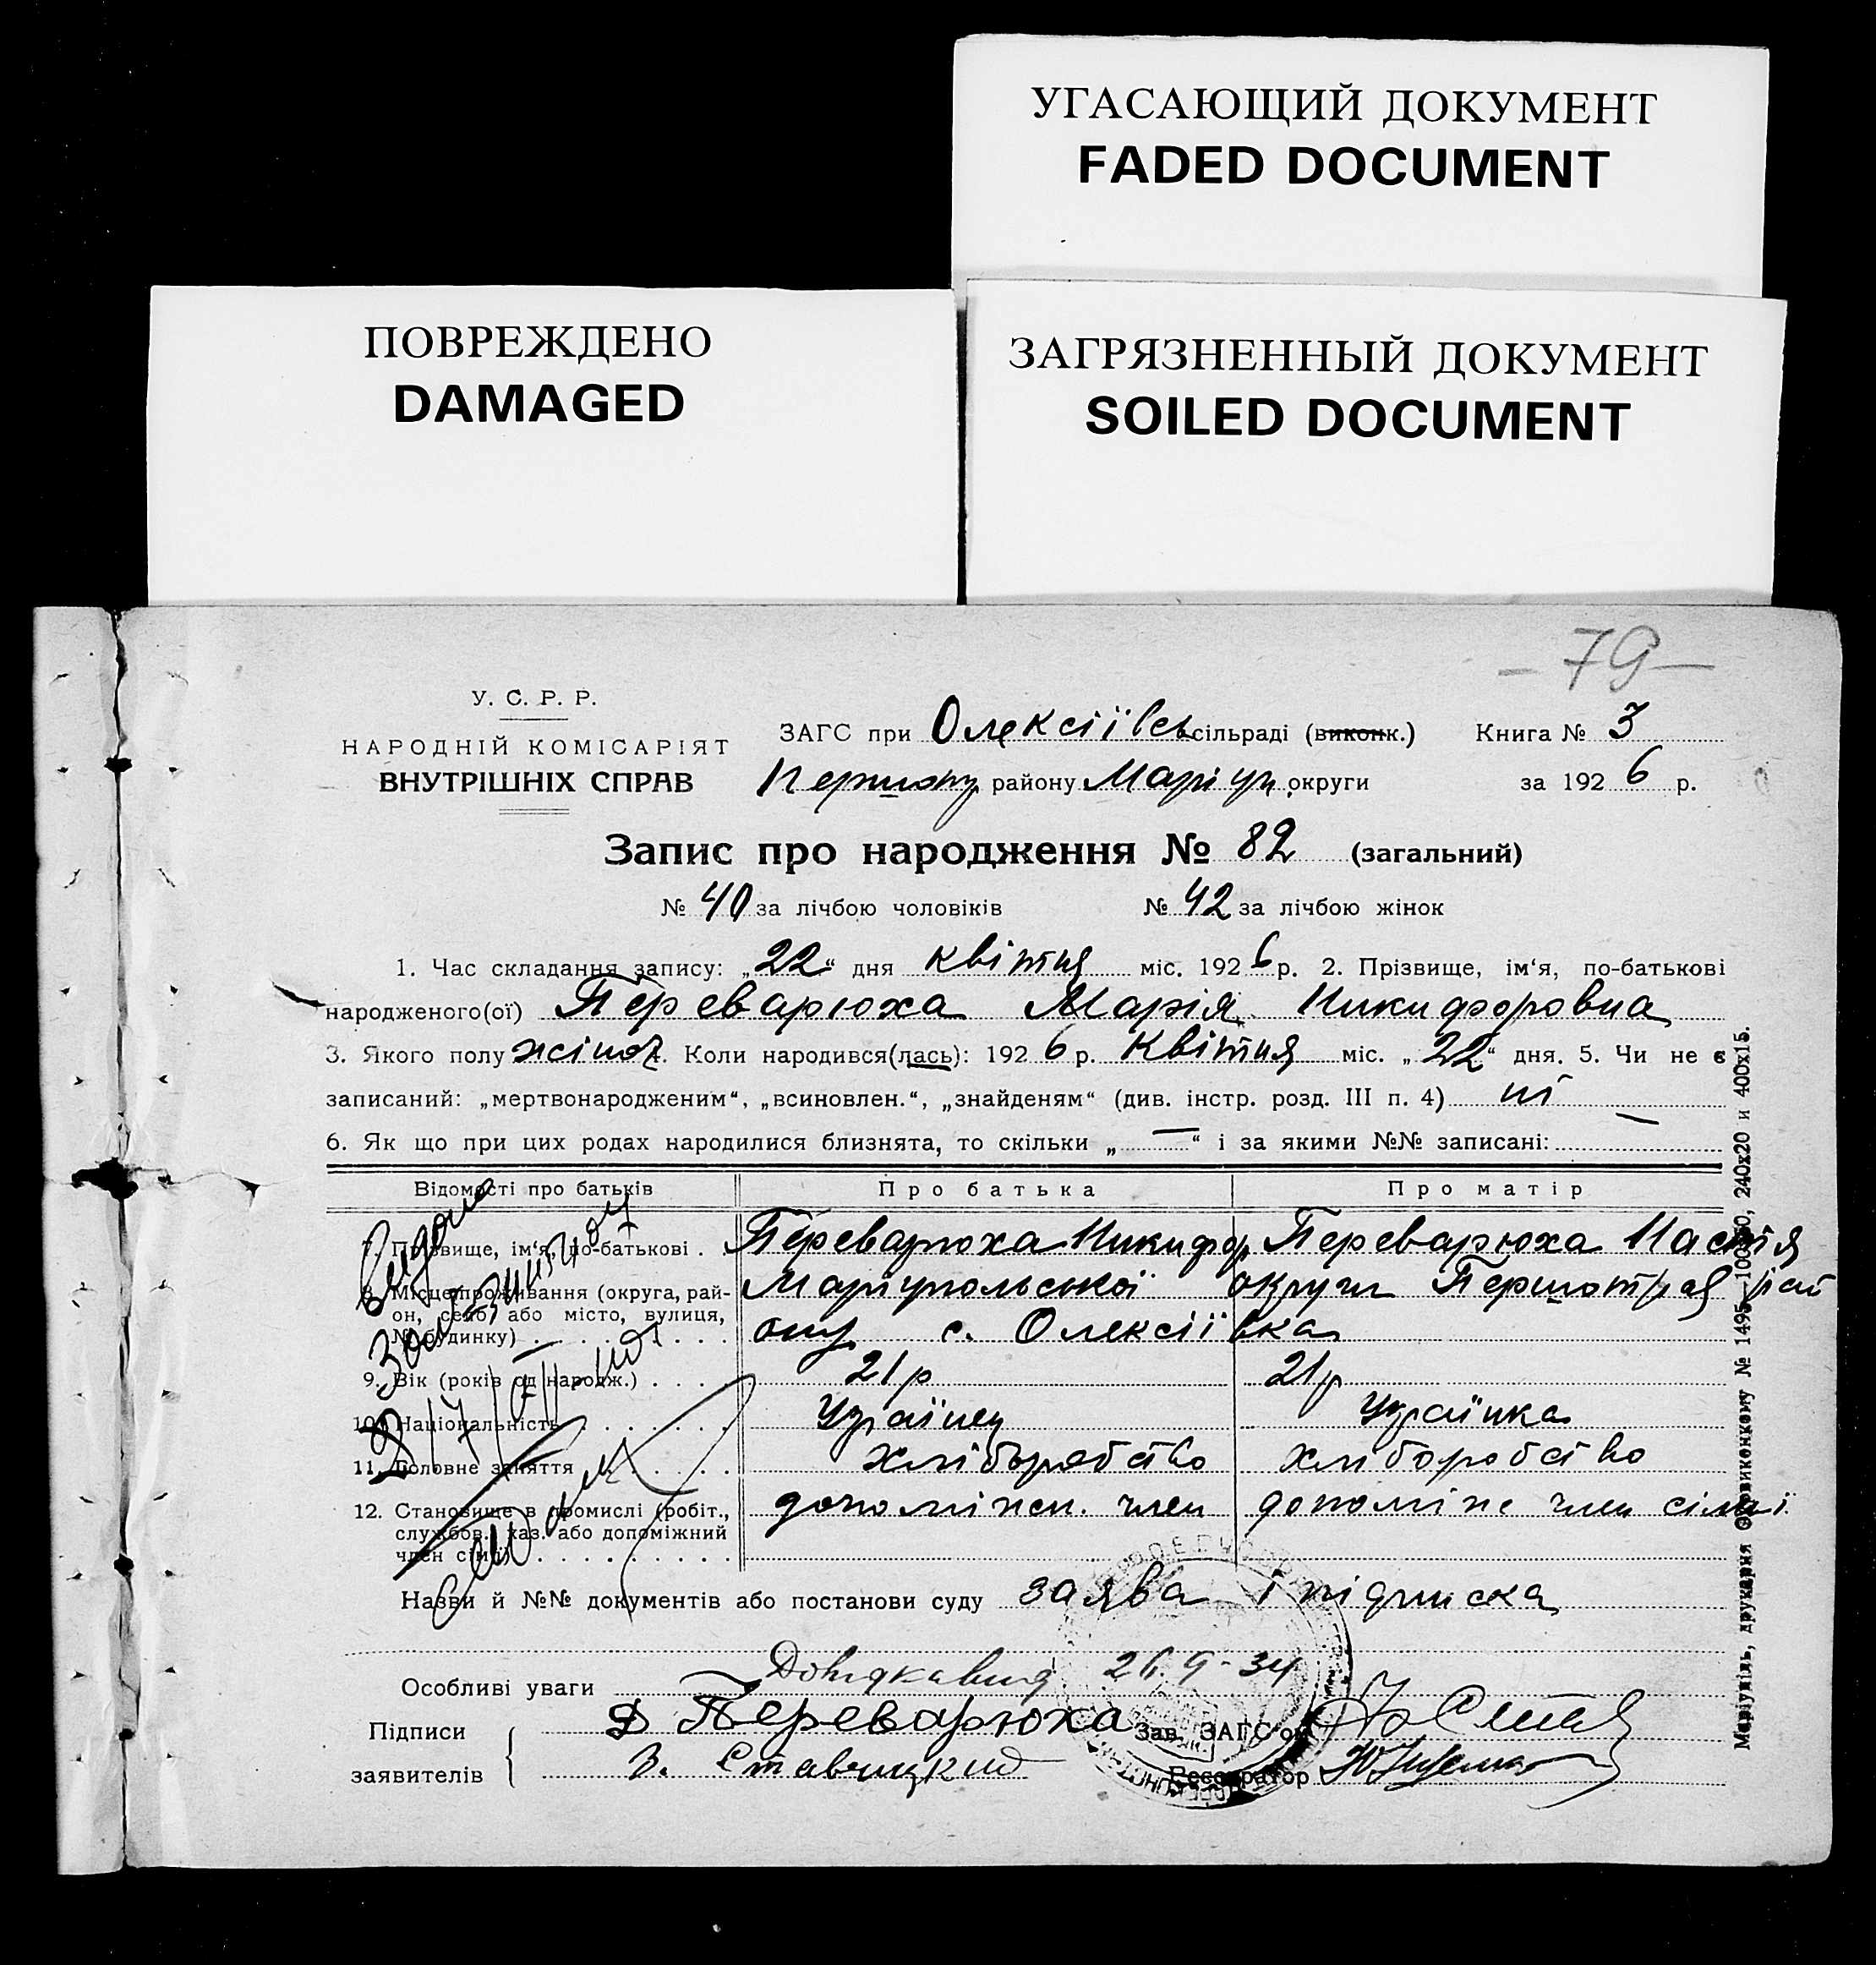 УГАСАЮЩИЙ ДОКУМЕНТ
FADED DOCUMENT
ПОВРЕЖДЕНО
DAMAGED
ЗАГРЯЗНЕННЫЙ ДОКУМЕНТ
SOILED DOCUMENT
– 79 –
У. С. Р. Р.
НАРОДНІЙ КОМІСАРІЯТ
ВНУТРІШНІХ СПРАВ
ЗАГС при Олексіївсь сільраді (виконк.) Книга № 3
Першотр району Маріуп округи за 1926 р.
Запис про народження № 82 (загальний)
№ 40 за лічбою чоловіків № 42 за лічбою жінок
1. Час складання запису: „22“ дня квітня міс. 1926 р. 2. Прізвище, ім‘я, по-батькові
народженого(ої) Переварюха Марія Никифоровна
3. Якого полу жіноч 4. Коли народився(лась): 1926 р. Квітня міс. „22“ дня. 5. Чи не є
записаний: „мертвонародженим“, „всиновлен.“, „знайденям“ (див. інстр. розд. III п. 4) ні
6. Як що при цих родах народилися близнята, то скільки „—“ і за якими №№ записані: —
Відомості про батьків Про батька Про матір
7. Прізвище, ім‘я, по-батькові . . Переварюха Никифор Переварюха Настія
8. Місце проживання (округа, рай- Маріупольської округи Першотрав рай
он, село, або місто, вулиця, ону с. Олексіївка
№ будинку)
9. Вік (років од народж.) . . . . 21 р 21 р
10. Національність . . . . . . . Українец Українка
11. Головне заняття . . . . . . хліборобство хліборобство
12. Становище в промислі (робіт., допоміжн. член допоміжн член сімьї
службов., хаз. або допоміжний
член сім‘ї)
Видано
Назви й №№ документів або постанови суду заява і підписка
Особливі уваги Довідка вид 26.9-34
Підписи Переварюха Зав. ЗАГС‘ом
заявителів З. Ставицкий Реєстратор
Маріупіль, друкарня Окрвиконкому № 1495—100×50, 240х20 и 400х15.